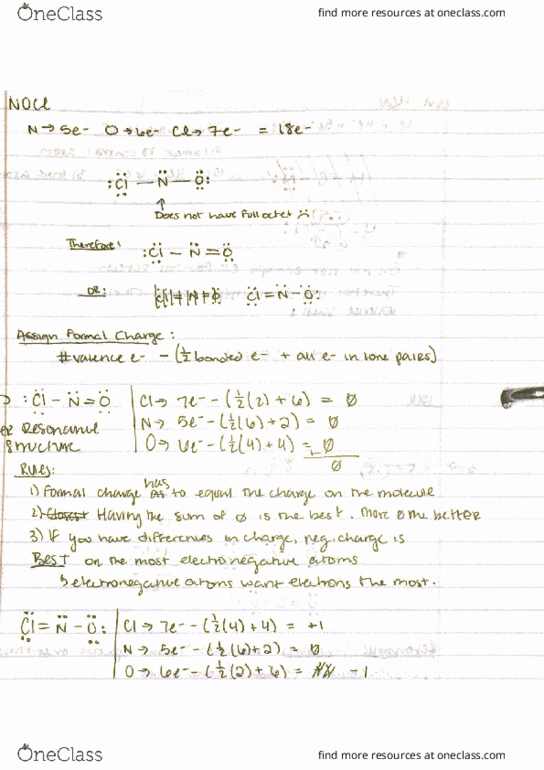 OneClass
find more resources at oneclass.com
NOCl
N → 5e- O → 6e- Cl → 7e- = 18e-
:Cl — N — O:
↑
Does not have full octet
Therefore: :Cl — N = O
OR: Cl = N — O:
Assign Formal Charge:
# valence e- - (½ bonded e- + all e- in lone pairs)
:Cl — N = O
Cl → 7e- - (½(2) + 6) = ∅
N → 5e- - (½(6) + 2) = ∅
O → 6e- - (½(4) + 4) = ∅
∅
Resonance
structure
Rules:
1) Formal charge has to equal the charge on the molecule
2) Having the sum of ∅ is the best. More ∅ the better
3) If you have differences in charge, neg. charge is
BEST on the most electronegative atoms
↳ electronegative atoms want electrons the most.
Cl = N — O:
Cl → 7e- - (½(4) + 4) = +1
N → 5e- - (½(6) + 2) = ∅
O → 6e- - (½(2) + 6) = -1
OneClass
find more resources at oneclass.com